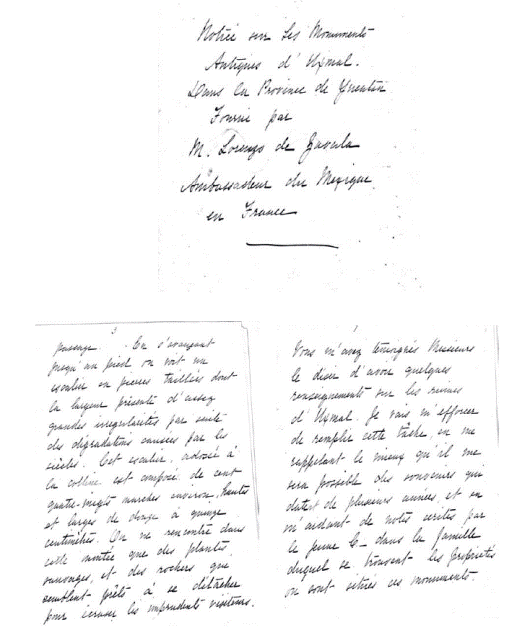 Notice sur Les Monuments
Antiques d'Uxmal.
Dans la Province de Yucatan
Fournie par
M. Lorenzo de Zavala
Ambassadeur du Mexique
en France
3
passage. En s'avançant
jusqu'au pied, on voit un
escalier en pierres taillées dont
la largeur présente d'assez
grandes irrégularités par suite
des dégradations causées par les
siècles. Cet escalier, adossé à
la colline est composé de cent
quatre-vingts marches environ, hautes
et larges de douze à quinze
centimètres. On ne rencontre dans
cette montée que des plantes
sauvages, et des rochers que
semblent prêts à se détacher
pour écraser les imprudents visiteurs.
Vous m'avez témoigné Messieurs
le désir d'avoir quelques
renseignements sur les ruines
d'Uxmal. Je vais m'efforcer
de remplir cette tâche, en me
rappelant le mieux qu'il me
sera possible des souvenirs qui
datent de plusieurs années, et en
m'aidant de notes écrites par
le jeune G— dans la famille
duquel se trouvent les propriétés
où sont situés ces monuments.